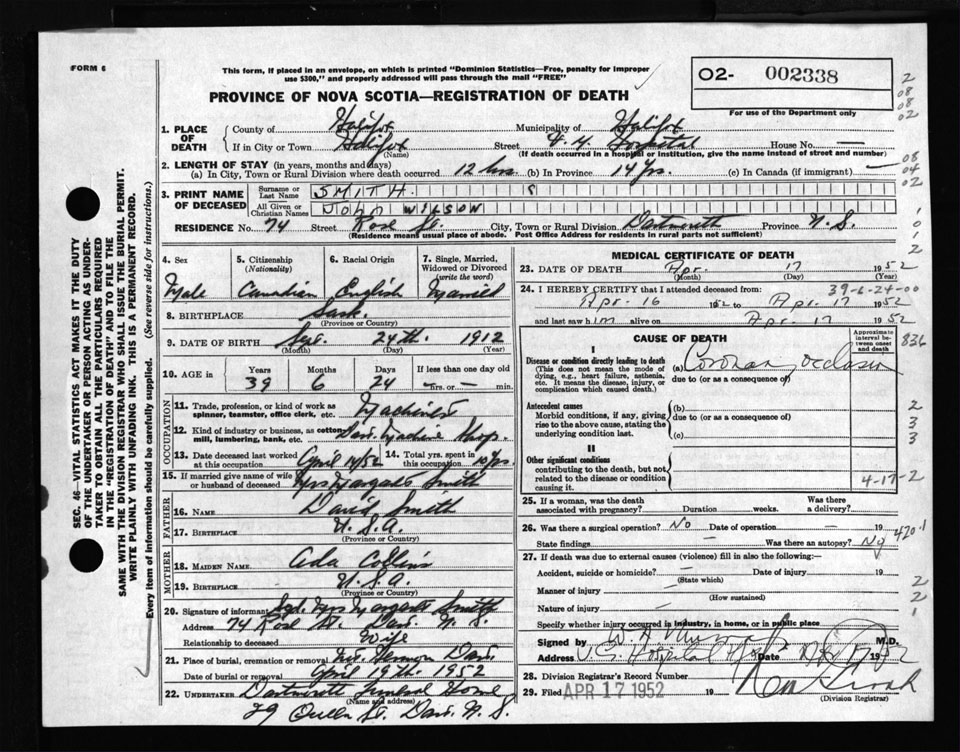 FORM 6
This form, if placed in an envelope, on which is printed "Dominion Statistics—Free, penalty for improper
use $300," and properly addressed will pass through the mail "FREE"
O2- 002338
For use of the Department only
PROVINCE OF NOVA SCOTIA—REGISTRATION OF DEATH
2
08
08
02
1. PLACE OF DEATH
County of Halifax Municipality of Halifax
If in City or Town Halifax Street Hospital House No. —
(Name) (If death occurred in a hospital or institution, give the name instead of street and number)
2. LENGTH OF STAY (in years, months and days)
(a) In City, Town or Rural Division where death occurred 12 hrs (b) In Province 14 Yrs. (c) In Canada (if immigrant) —
08
04
02
3. PRINT NAME OF DECEASED
Surname or Last Name SMITH 8
All Given or Christian Names JOHN WILSON
RESIDENCE No. 74 Street Rose St. City, Town or Rural Division Dartmouth Province N. S.
(Residence means usual place of abode. Post Office Address for residents in rural parts not sufficient)
1
0
1
2
4. Sex Male
5. Citizenship (Nationality) Canadian
6. Racial Origin English
7. Single, Married, Widowed or Divorced (write the word) Married
8. BIRTHPLACE Sask.
(Province or Country)
9. DATE OF BIRTH Sept. 24th. 1912
(Month) (Day) (Year)
10. AGE in Years 39 Months 6 Days 24 If less than one day — hrs. or — min.
OCCUPATION
11. Trade, profession, or kind of work as spinner, teamster, office clerk, etc. Machinist
12. Kind of industry or business, as cotton mill, lumbering, bank, etc. Dart. Machine Shop.
13. Date deceased last worked at this occupation April 14/52 14. Total yrs. spent in this occupation 10 Yrs.
15. If married give name of wife or husband of deceased Mrs Margaret Smith
FATHER
16. NAME David Smith
17. BIRTHPLACE U.S.A.
(Province or Country)
MOTHER
18. MAIDEN NAME Ada Collins
19. BIRTHPLACE U.S.A.
(Province or Country)
20. Signature of informant Sgd. Mrs Margaret Smith
Address 74 Rose St. Dart. N. S.
Relationship to deceased Wife
21. Place of burial, cremation or removal Mt. Hermon Dart.
Date of burial or removal April 19th. 1952
22. UNDERTAKER Dartmouth Funeral Home
(Name and address)
29 Queen St. Dart. N. S.
MEDICAL CERTIFICATE OF DEATH
23. DATE OF DEATH Apr. 17 1952
(Month) (Day) (Year)
24. I HEREBY CERTIFY that I attended deceased from: 39-6-24-00
Apr. 16 1952 to Apr. 17 1952
and last saw him alive on Apr. 17 1952
CAUSE OF DEATH
Approximate interval between onset and death
836
I
Disease or condition directly leading to death
(This does not mean the mode of dying, e.g., heart failure, asthenia, etc. It means the disease, injury, or complication which caused death.)
(a) Coronary occlusion
due to (or as a consequence of)
Antecedent causes
Morbid conditions, if any, giving rise to the above cause, stating the underlying condition last.
(b)
due to (or as a consequence of)
(c)
2
3
3
II
Other significant conditions
contributing to the death, but not related to the disease or condition causing it.
4-17-2
25. If a woman, was the death associated with pregnancy? Duration weeks. Was there a delivery?
26. Was there a surgical operation? No Date of operation — 19
420.1
State findings — Was there an autopsy? No
27. If death was due to external causes (violence) fill in also the following:—
Accident, suicide or homicide? Date of injury 19
(State which)
Manner of injury
(How sustained)
Nature of injury
2
2
1
Specify whether injury occurred in industry, in home, or in public place
Signed by W. A. Murray M.D.
Address V. G. Hospital Hfx Date Apr 17 1952
28. Division Registrar's Record Number
29. Filed APR 17 1952 19
(Division Registrar)
SEC. 46—VITAL STATISTICS ACT MAKES IT THE DUTY
OF THE UNDERTAKER OR PERSON ACTING AS UNDER-
TAKER TO OBTAIN ALL THE PARTICULARS REQUIRED
IN THE "REGISTRATION OF DEATH" AND TO FILE THE
SAME WITH THE DIVISION REGISTRAR WHO SHALL ISSUE THE BURIAL PERMIT.
WRITE PLAINLY WITH UNFADING INK. THIS IS A PERMANENT RECORD.
Every item of information should be carefully supplied. (See reverse side for instructions.)